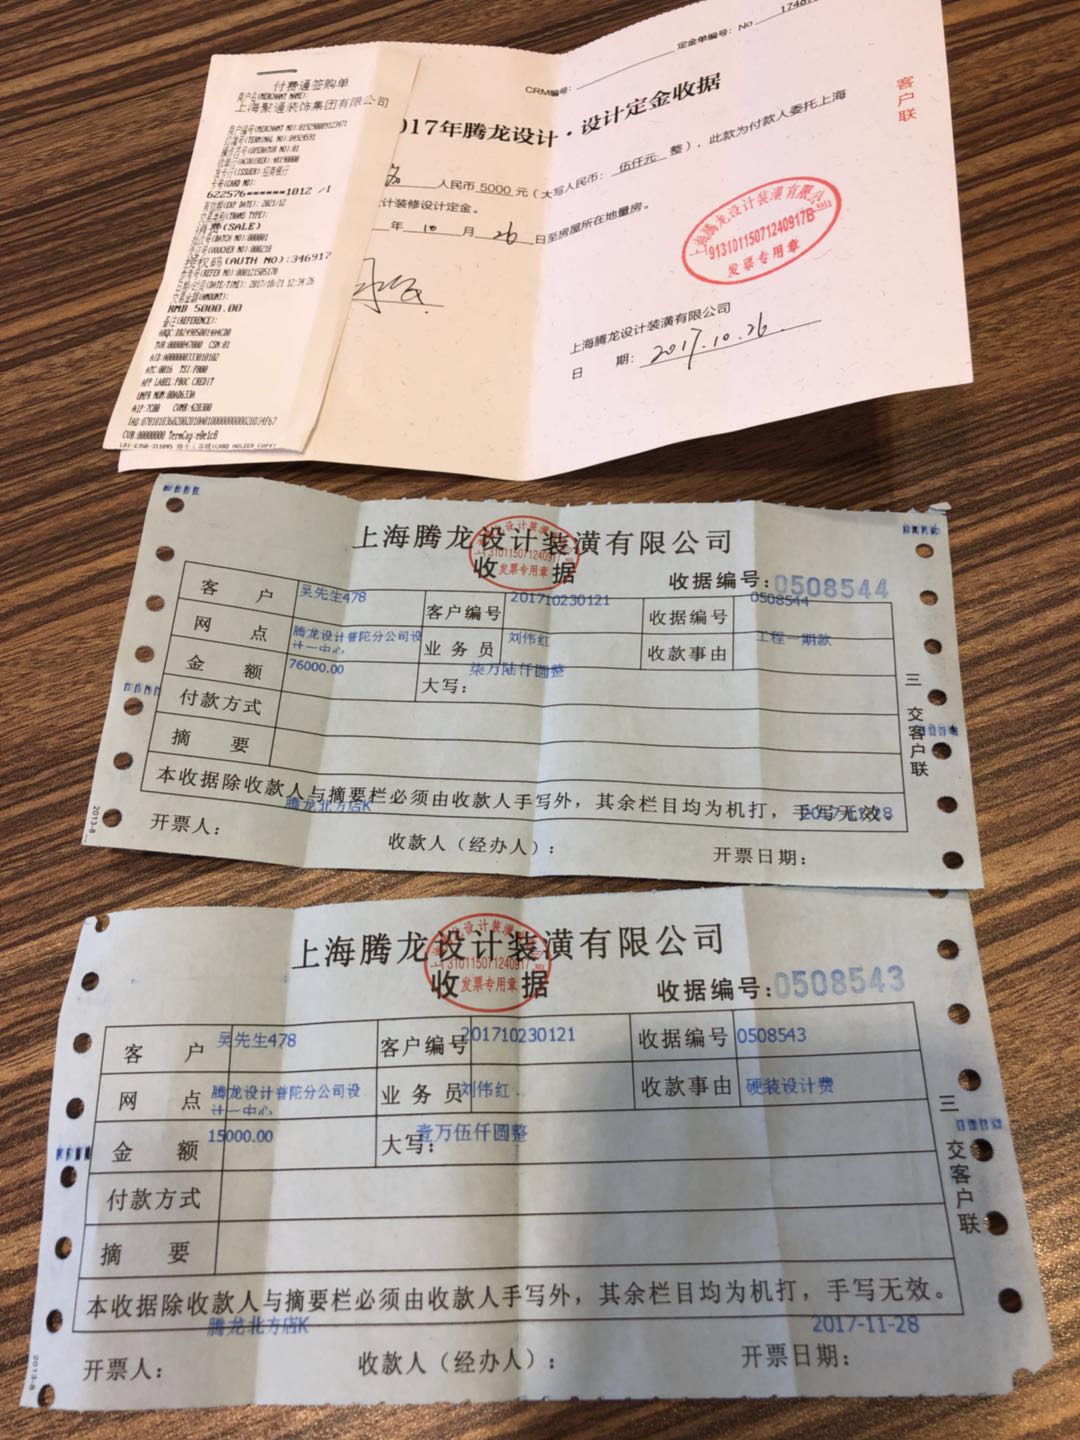 付费通签购单
商户名(MERCHANT NAME)
上海聚通装饰集团有限公司
(TERMINAL NO):04924591
(OPERATOR NO):01
(ACQUIRER):48190000
(ISSUER):招商银行
卡号(CARD NO):
622576******1012 /I
(EXP DATE): 2021/12
(TRANS TYPE):
消费(SALE)
(BATCH NO):000001
(VOUCHER NO):000218
授权码(AUTH NO):346917
(REFER NO):000121505170
(DATE/TIME): 2017/10/21 12:34:26
(AMOUNT):
RMB 5000.00
备注(REFERENCE):
ATC:0016 TSI:F800
APP LABEL:PBOC CREDIT
AIP:7C00 CVMR:420300
CVM:00000000 TermCap:e0e1c8
CRM编号:
定金单编号: No
客户联
017年腾龙设计·设计定金收据
人民币 5000 元(大写人民币: 伍仟元 整), 此款为付款人委托上海
计装修设计定金。
年 10 月 26 日至房屋所在地量房。
上海腾龙设计装潢有限公司
91310115071240917B
发票专用章
上海腾龙设计装潢有限公司
日 期: 2017.10.26
上海腾龙设计装潢有限公司
收 据
发票专用章
收据编号:0508544
客 户 吴先生478 客户编号 201710230121 收据编号 0508544
网 点 腾龙设计普陀分公司设计一中心 业务员 刘伟红 收款事由 工程一期款
金 额 76000.00 大写: 柒万陆仟圆整
付款方式
摘 要
本收据除收款人与摘要栏必须由收款人手写外,其余栏目均为机打,手写无效。
腾龙北方店K 2017-11-28
开票人: 收款人(经办人): 开票日期:
三 交客户联
2013-8
上海腾龙设计装潢有限公司
收 据
发票专用章
收据编号:0508543
客 户 吴先生478 客户编号 201710230121 收据编号 0508543
网 点 腾龙设计普陀分公司设计一中心 业务员 刘伟红 收款事由 硬装设计费
金 额 15000.00 大写: 壹万伍仟圆整
付款方式
摘 要
本收据除收款人与摘要栏必须由收款人手写外,其余栏目均为机打,手写无效。
腾龙北方店K 2017-11-28
开票人: 收款人(经办人): 开票日期:
三 交客户联
2013-8